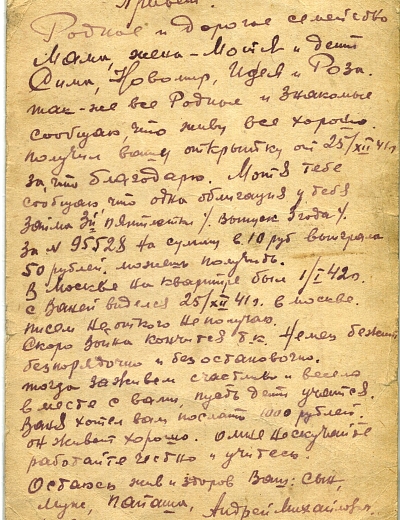 Привет.
Родное и дорогое семейство
Мама, жена - Мотя и дети
Сима, Новомир, Идея и Роза.
так-же все Родные и Знакомые
сообщаю, что живу все хорошо
получил вашу открытку от 25/XII 41г
за что благодарю. Мотя тебе
сообщаю, что одна облигация у тебя
займа 3й пятилетки /. выпуск 3 года /.
за № 95528 на сумму в 10 руб выиграла
50 рублей. можешь получить.
В Москве на квартире был 1/I 42г.
с Ваней виделся 25/XII 41г. в москве.
писем не откого неполучаю.
Скоро война кончится т.к. Немец бежит
безпорядочно и безостановочно.
тогда заживем счастливо и весело
вместе с вами, пусть дети учатся.
Ваня хотел вам послать 1000 рублей.
он живет хорошо. омне нескучайте
работайте честно и учитесь.
Остаюсь жив и здоров Ваш: сын,
муж, папаша, Андрей Михайлович.